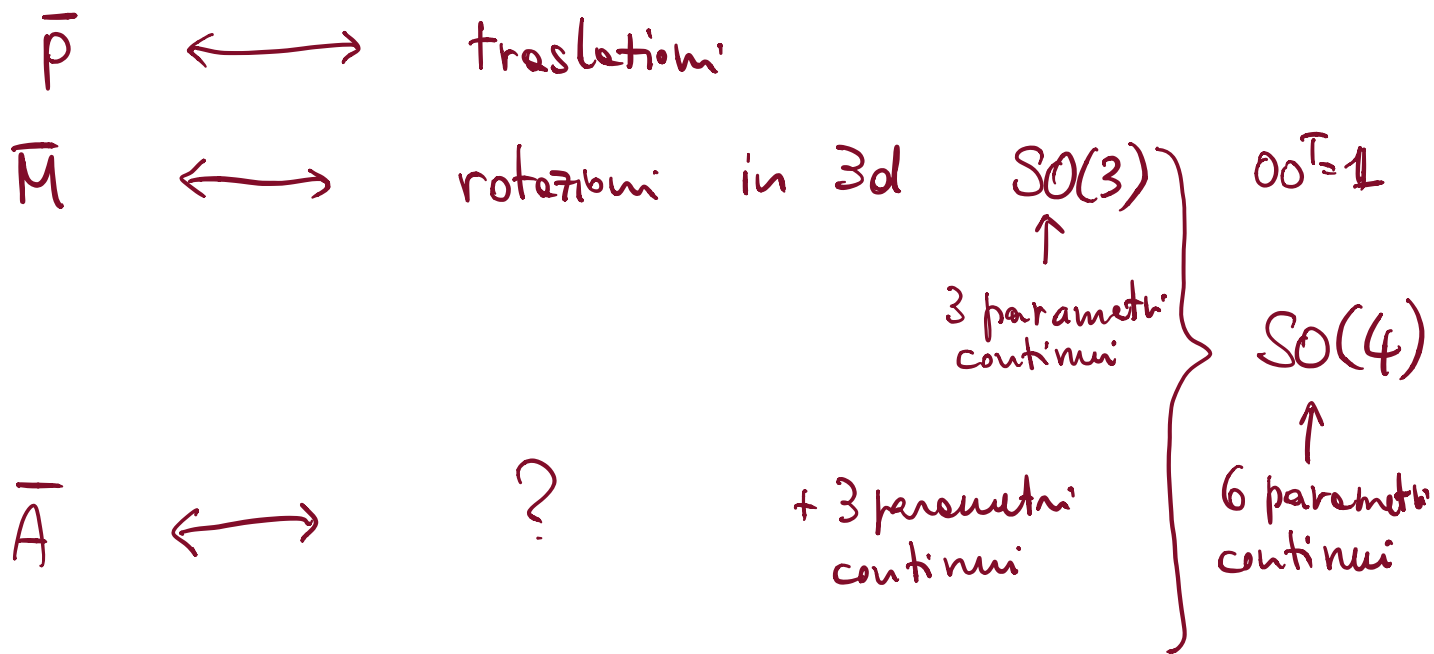 p̄ ⟷ traslazioni
M̄ ⟷ rotazioni in 3d SO(3) OOᵀ=1
↑
3 parametri
continui
SO(4)
↑
Ā ⟷ ? + 3 parametri
continui
6 parametri
continui